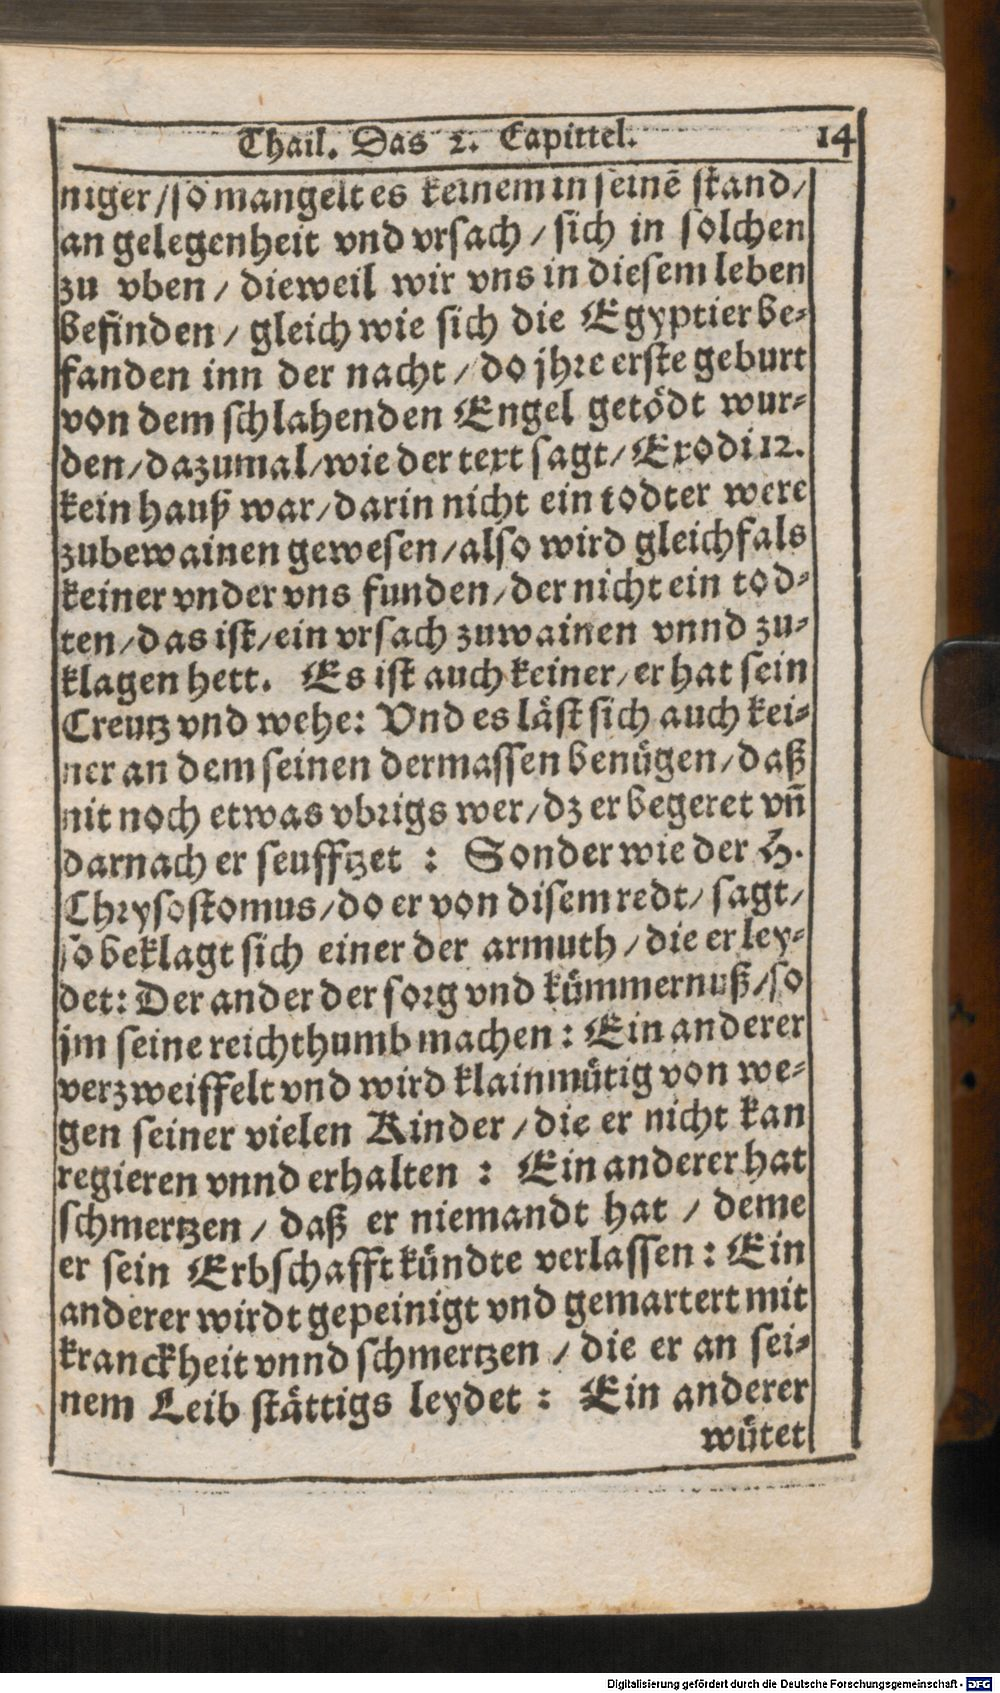 Thail. Das 2. Capittel. 14
niger/so mangelt es keinem in seinē stand/
an gelegenheit vnd vrsach/sich in solchen
zu vben/dieweil wir vns in diesem leben
befinden/gleich wie sich die Egyptier be-
fanden inn der nacht/do jhre erste geburt
von dem schlahenden Engel getödt wur-
den/dazumal/wie der text sagt/Exodi 12.
kein hauß war/darin nicht ein todter were
zubewainen gewesen/also wird gleichfals
keiner vnder vns funden/der nicht ein tod-
ten/das ist/ein vrsach zuwainen vnnd zu-
klagen hett. Es ist auch keiner/er hat sein
Creutz vnd wehe: Vnd es läst sich auch kei-
ner an dem seinen dermassen benügen/daß
nit noch etwas vbrigs wer/dz er begeret vñ
darnach er seufftzet : Sonder wie der H.
Chrysostomus/do er von disem redt/sagt/
so beklagt sich einer der armuth/die er ley-
det: Der ander der sorg vnd kümmernuß/so
jm seine reichthumb machen: Ein anderer
verzweiffelt vnd wird klainmütig von we-
gen seiner vielen Kinder/die er nicht kan
regieren vnnd erhalten : Ein anderer hat
schmertzen/daß er niemandt hat/deme
er sein Erbschafft kündte verlassen: Ein
anderer wirdt gepeinigt vnd gemartert mit
kranckheit vnnd schmertzen/die er an sei-
nem Leib stättigs leydet : Ein anderer
wütet
Digitalisierung gefördert durch die Deutsche Forschungsgemeinschaft - DFG